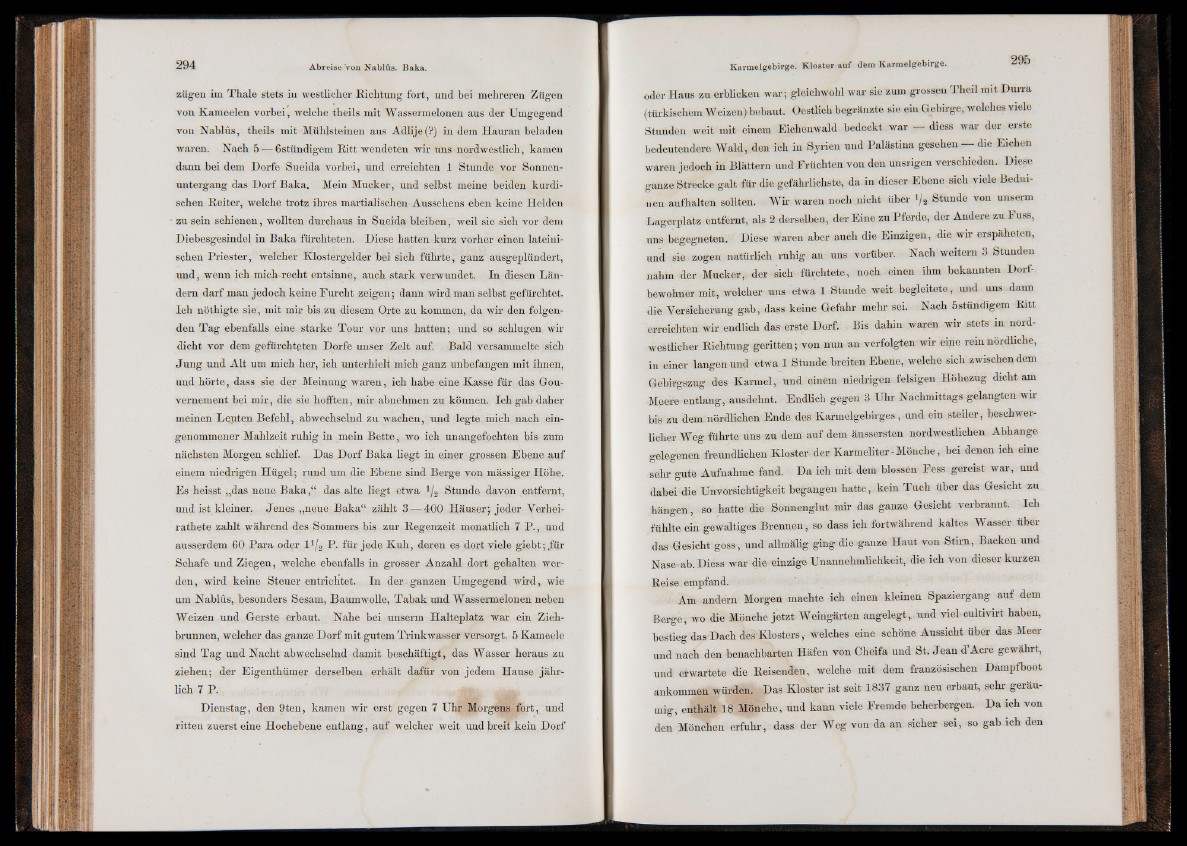 294
Abreise von Nablûs. Baka.
zügen im Thale stets in westlicher Richtung fort, und bei mehreren Zügen
von Kameelen vorbei, welche theils mit Wassermelonen aus der Umgegend
von Nablûs, theils mit Mühlsteinen aus Adlije (?) in dem Hauran beladen
waren. Nach 5 — 6stündigem Ritt wendeten wir uns nordwestlich, kamen
dann bei dem Dorfe Sueida vorbei, und erreichten 1 Stunde vor Sonnen-
untergang das Dorf Baka. Mein Mucker, und selbst meine beiden kurdi-
schen Reiter, welche trotz ihres martialischen Aussehens eben keine Helden
zu sein schienen, wollten durchaus in Sueida bleiben, weil sie sich vor dem
Diebesgesindel in Baka fürchteten. Diese hatten kurz vorher einen lateini-
schen Priester, welcher Klostergelder bei sich führte, ganz ausgeplündert,
und, wenn ich mich recht entsinne, auch stark verwundet. In diesen Län-
dern darf man jedoch keine Furcht zeigen; dann wird man selbst gefürchtet.
Ich nöthigte sie, mit mir bis zu diesem Orte zu kommen, da wir den folgen-
den Tag ebenfalls eine starke Tour vor uns hatten; und so schlugen wir
dicht vor dem gefürchteten Dorfe unser Zelt auf. Bald versammelte sich
Jung und Alt um mich her, ich unterhielt mich ganz unbefangen mit ihnen,
und hörte, dass sie der Meinung waren, ich habe eine Kasse für das Gou-
vernement bei mir, die sie hofften, mir abnehmen zu können. Ich gab daher
meinen Leuten Befehl, abwechselnd zu wachen, und legte mich nach ein-
genommener Mahlzeit ruhig in mein Bette, wo ich unangefochten bis zum
nächsten Morgen schlief. Das Dorf Baka liegt in einer grossen Ebene auf
einem niedrigen Hügel; rund um die Ebene sind Berge von mässiger Höhe.
Es heisst „das neue Baka,“ das alte liegt etwa 1/2 Stunde davon entfernt,
und ist kleiner. Jenes „neue Baka“ zählt 3 — 400 Häuser; jeder Verhei-
rathete zahlt während des Sommers bis zur Regenzeit monatlich 7 P., und
ausserdem 60 Para oder 11/2 P. für jede Kuh, deren es dort viele giebt; für
Schafe und Ziegen, welche ebenfalls in grosser Anzahl dort gehalten wer-
den, wird keine Steuer entrichtet. In der ganzen Umgegend wird, wie
um Nablûs, besonders Sesam, Baumwolle, Tabak und Wassermelonen neben
Weizen und Gerste erbaut. Nahe bei unserm Halteplatz war ein Zieh-
brunnen, welcher das ganze Dorf mit gutem Trinkwasser versorgt. 5 Kameele
sind Tag und Nacht abwechselnd damit beschäftigt, das Wasser heraus zu
ziehen; der Eigenthümer derselben erhält dafür von jedem Hause jähr-
lich 7 P.
Dienstag, den 9ten, kamen wir erst gegen 7 Uhr Morgens fort, und
ritten zuerst eine Hochebene entlang, auf welcher weit und breit kein Dorf
Karmelgebirge. Kloster auf dem Karmelgebirge.
295
oder Haus zu erblicken war; gleichwohl war sie zum grossen Theil mit Durra
(türkischem Weizen) bebaut. Oestlich begränzte sie ein Gebirge, welches viele
Stunden weit mit einem Eichenwald bedeckt war — diess war der erste
bedeutendere Wald, den ich in Syrien und Palästina gesehen — die Eichen
waren jedoch in Blättern und Früchten von den unsrigen verschieden. Diese
ganze Strecke galt für die gefährlichste, da in dieser Ebene sich viele Bedui-
nen aufhalten sollten. Wir waren noch nicht über 1/2 Stunde von unserm
Lagerplatz entfernt, als 2 derselben, der Eine zu Pferde, der Andere zu Fuss,
uns begegneten. Diese waren aber auch die Einzigen, die wir erspäheten,
und sie zogen natürlich ruhig an uns vorüber. Nach weitern 3 Stunden
nahm der Mucker, der sich fürchtete, noch einen ihm bekannten Dorf-
bewohner mit, welcher uns etwa 1 Stunde weit begleitete, und uns dann
die Versicherung gab, dass keine Gefahr mehr sei. Nach 5stündigem Ritt
erreichten wir endlich das erste Dorf. Bis dahin waren wir stets in nord-
westlicher Richtung geritten; von nun an verfolgten wir eine rein nördliche,
in einer langen und etwa 1 Stunde breiten Ebene, welche sich zwischen dem
Gebirgszug des Karmel, und einem niedrigen felsigen Höhezug dicht am
Meere entlang, ausdehnt. Endlich gegen 3 Uhr Nachmittags gelangten wir
bis zu dem nördlichen Ende des Karmelgebirges, und ein steiler, beschwer-
licher Weg führte uns zu dem auf dem äussersten nordwestlichen Abhange
gelegenen freundlichen Kloster der Karmeliter-Mönche, bei denen ich eine
sehr gute Aufnahme fand. Da ich mit dem blossen Fess gereist war, und
dabei die Unvorsichtigkeit begangen hatte, kein Tuch über das Gesicht zu
hängen, so hatte die Sonnenglut mir das ganze Gesicht verbrannt. Ich
fühlte ein gewaltiges Brennen, so dass ich fortwährend kaltes Wasser über
das Gesicht goss, und allmälig ging die ganze Haut von Stirn, Backen und
Nase ab. Diess war die einzige Unannehmlichkeit, die ich von dieser kurzen
Reise empfand.
Am andern Morgen machte ich einen kleinen Spaziergang auf dem
Berge, wo die Mönche jetzt Weingärten angelegt, und viel cultivirt haben,
bestieg das Dach des Klosters, welches eine schöne Aussicht über das Meer
und nach den benachbarten Häfen von Cheifa und St. Jean d'Acre gewährt,
und erwartete die Reisenden, welche mit dem französischen Dampfboot
ankommen würden. Das Kloster ist seit 1837 ganz neu erbaut, sehr geräu-
mig, enthält 18 Mönche, und kann viele Fremde beherbergen. Da ich von
den Mönchen erfuhr, dass der Weg von da an sicher sei, so gab ich den